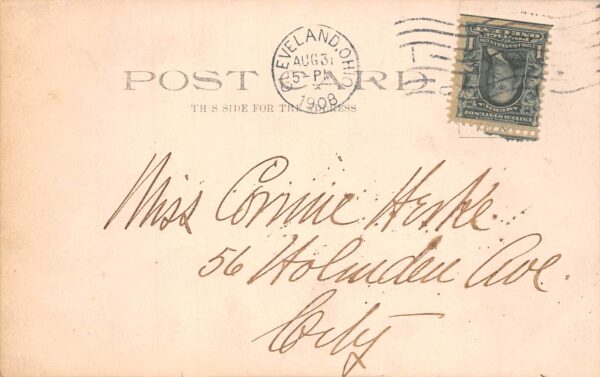 CLEVELAND, OHIO
AUG 31
5-PM
1908
POST CARD
THIS SIDE FOR THE ADDRESS
Miss Corinne
56 Holmden Ave.
City